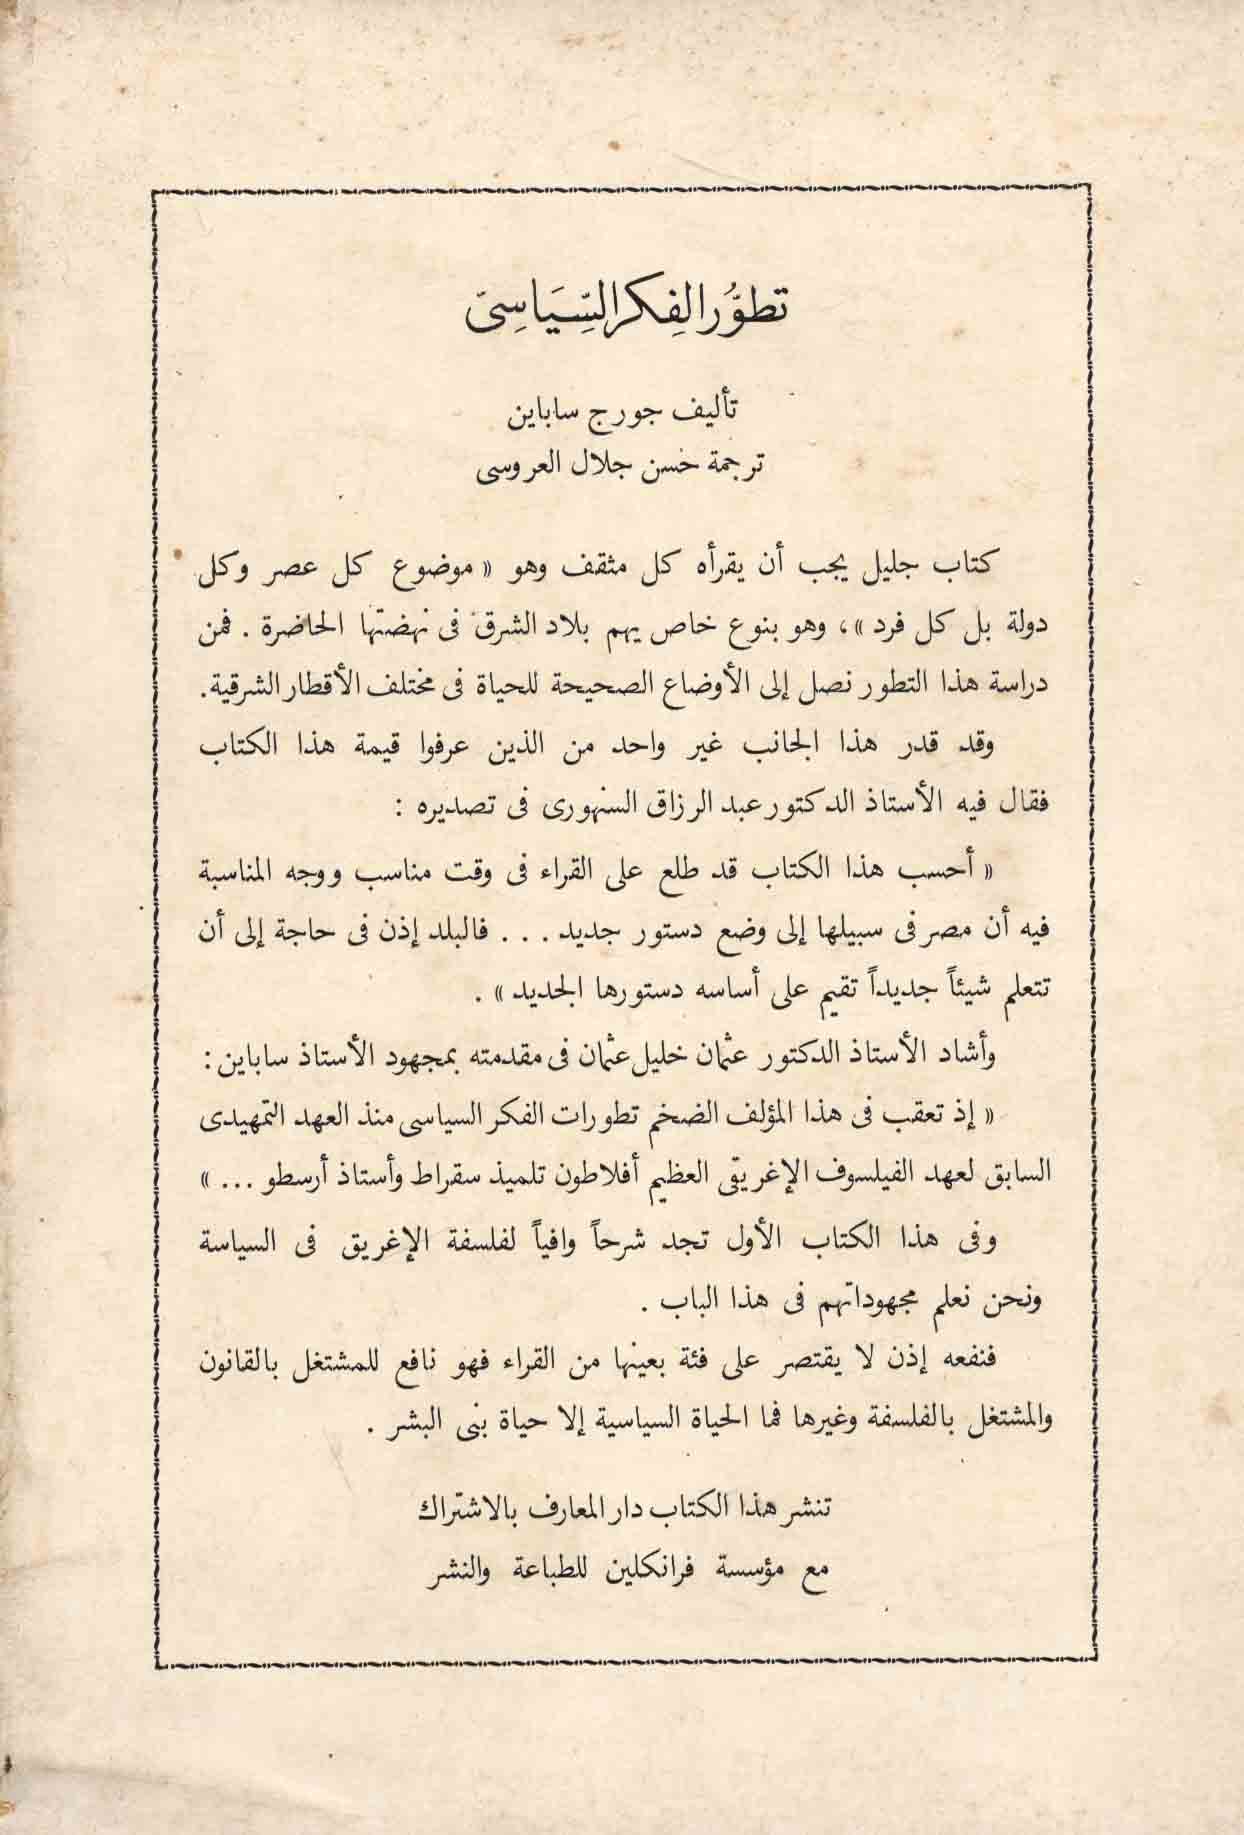 تطوُّر الفِكر السِّيَاسِىّ
تأليف جورج ساباين
ترجمة حسن جلال العروسى
كتاب جليل يجب أن يقرأه كل مثقف وهو « موضوع كل عصر وكل
دولة بل كل فرد »، وهو بنوع خاص يهم بلاد الشرق فى نهضتها الحاضرة . فمن
دراسة هذا التطور نصل إلى الأوضاع الصحيحة للحياة فى مختلف الأقطار الشرقية.
وقد قدر هذا الجانب غير واحد من الذين عرفوا قيمة هذا الكتاب
فقال فيه الأستاذ الدكتور عبد الرزاق السنهورى فى تصديره :
« أحسب هذا الكتاب قد طلع على القراء فى وقت مناسب ووجه المناسبة
فيه أن مصر فى سبيلها إلى وضع دستور جديد . . . فالبلد إذن فى حاجة إلى أن
تتعلم شيئاً جديداً تقيم على أساسه دستورها الجديد » .
وأشاد الأستاذ الدكتور عثمان خليل عثمان فى مقدمته بمجهود الأستاذ ساباين :
« إذ تعقب فى هذا المؤلف الضخم تطورات الفكر السياسى منذ العهد التمهيدى
السابق لعهد الفيلسوف الإغريقى العظيم أفلاطون تلميذ سقراط وأستاذ أرسطو ... »
وفى هذا الكتاب الأول تجد شرحاً وافياً لفلسفة الإغريق فى السياسة
ونحن نعلم مجهوداتهم فى هذا الباب .
فنفعه إذن لا يقتصر على فئة بعينها من القراء فهو نافع للمشتغل بالقانون
والمشتغل بالفلسفة وغيرها فما الحياة السياسية إلا حياة بنى البشر .
تنشر هذا الكتاب دار المعارف بالاشتراك
مع مؤسسة فرانكلين للطباعة والنشر